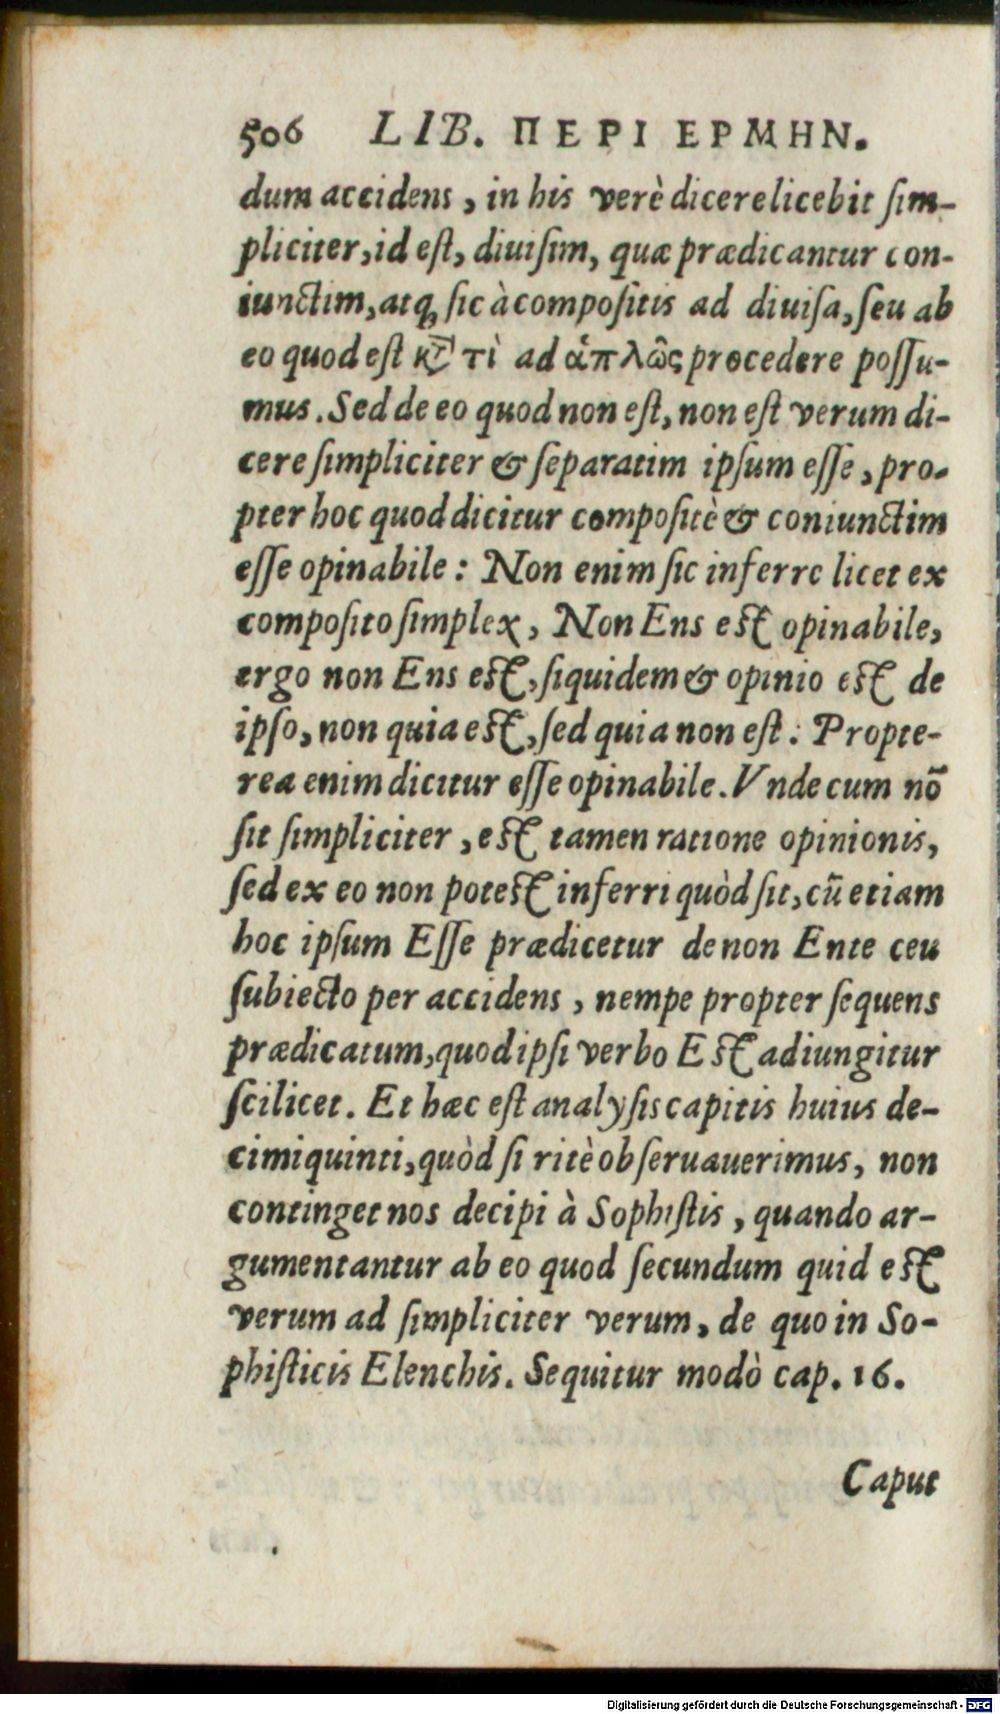 506 LIB. ΠΕΡΙ ΕΡΜΗΝ.
dum accidens, in his verè dicere licebit ſim-
pliciter, id eſt, diuiſim, quæ prædicantur con-
iunctim, atq; ſic à compoſitis ad diuiſa, ſeu ab
eo quod eſt κ̀ τὶ ad ἁπλῶς procedere poſſu-
mus. Sed de eo quod non eſt, non eſt verum di-
cere ſimpliciter & ſeparatim ipſum eſſe, pro-
pter hoc quod dicitur compoſitè & coniunctim
eſſe opinabile: Non enim ſic inferre licet ex
compoſito ſimplex, Non Ens eſt opinabile,
ergo non Ens eſt, ſiquidem & opinio eſt de
ipſo, non quia eſt, ſed quia non eſt. Propte-
rea enim dicitur eſſe opinabile. Vnde cum nō
ſit ſimpliciter, eſt tamen ratione opinionis,
ſed ex eo non poteſt inferri quòd ſit, cū etiam
hoc ipſum Eſſe prædicetur de non Ente ceu
ſubiecto per accidens, nempe propter ſequens
prædicatum, quod ipſi verbo Eſt adiungitur
ſcilicet. Et hæc eſt analyſis capitis huius de-
cimiquinti, quòd ſi ritè obſeruauerimus, non
continget nos decipi à Sophiſtis, quando ar-
gumentantur ab eo quod ſecundum quid eſt
verum ad ſimpliciter verum, de quo in So-
phiſticis Elenchis. Sequitur modò cap. 16.
Caput
Digitalisierung gefördert durch die Deutsche Forschungsgemeinschaft - DFG